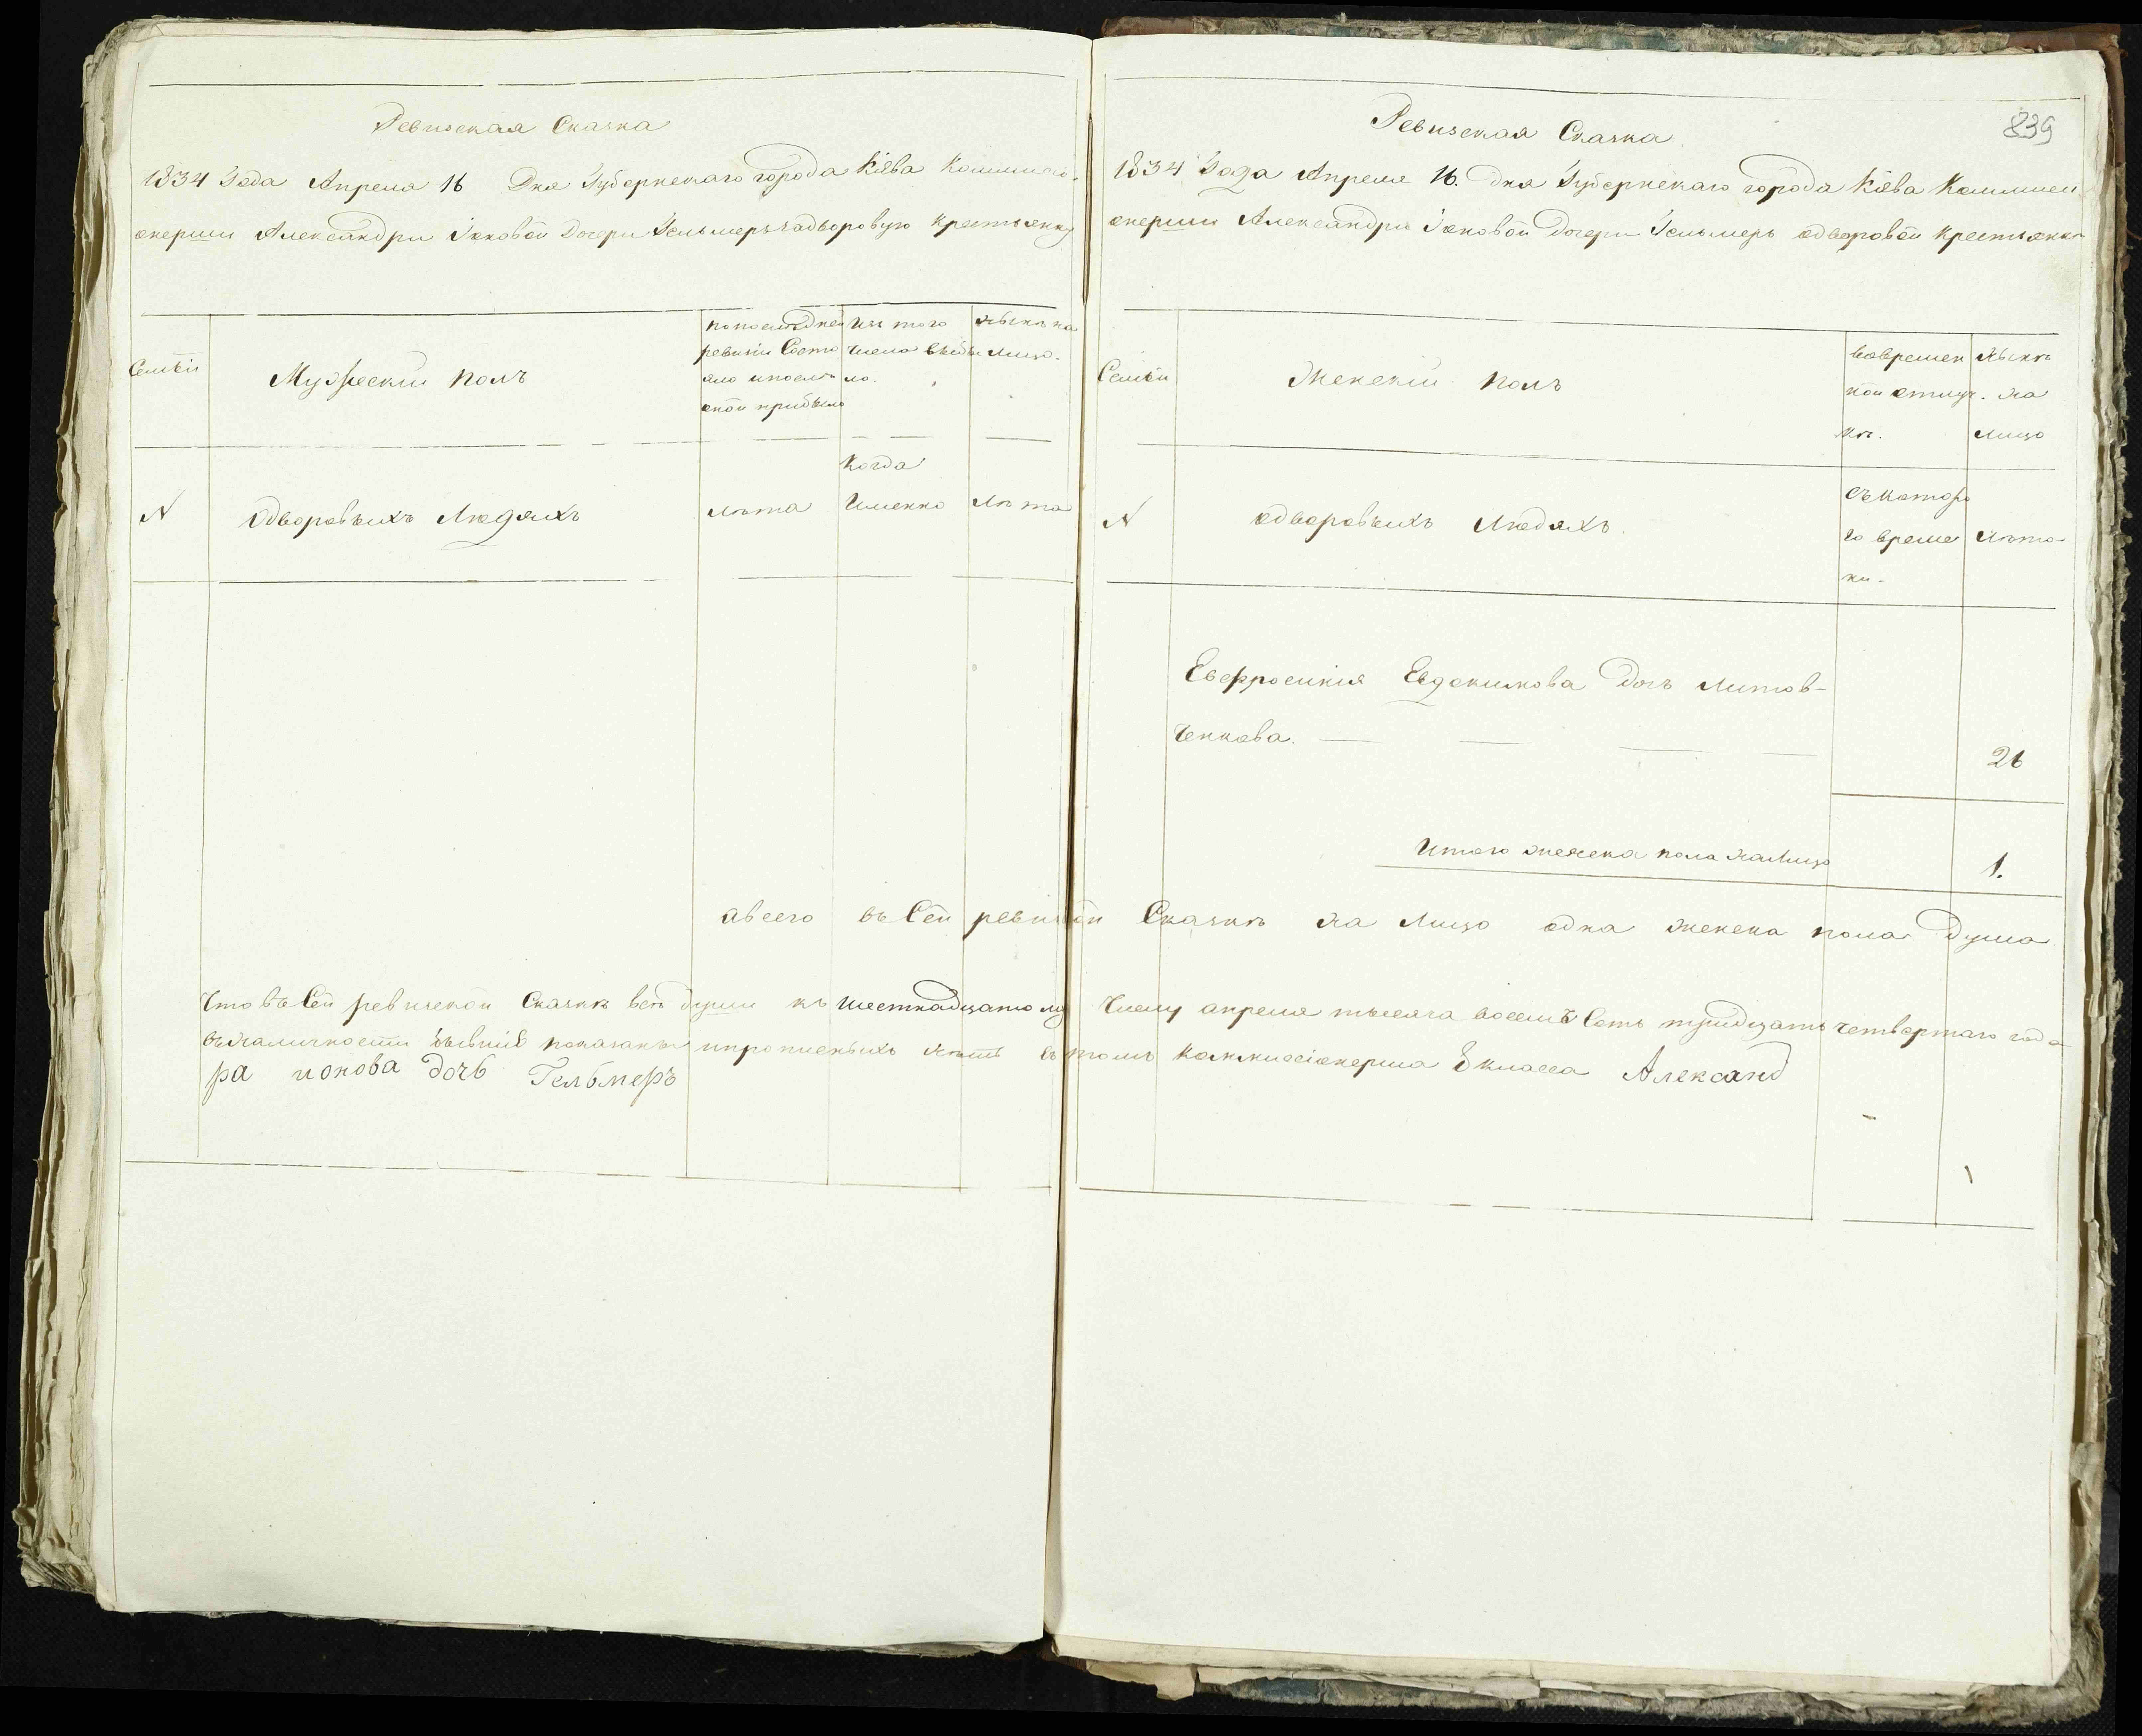 Ревизская Сказка
1834 Года Апреля 16 Дня Губернскаго города Кіева Коммисіо-
нерши Александры Іоновой Дочери Гельмеръ одворовую крестьянку
Семьи
Мужеский полъ
попоследней
ревизіи Состо
яло ипосле
оной прибыло
Изъ того
числа выбы
ло.
Нынѣ на
лицо.
N
Одворовыхъ Людяхъ
лѣта
Когда
Именно
Лѣта
Ревизская Сказка
839
1834 Года Апреля 16. дня Губернскаго города Кіева Коммиси
онерши Александры Іоновой Дочери Гельмеръ одворовой крестьянки
Семьи
Женский полъ
вовремен
ной отлуч.
кѣ.
Нынѣ
на
лицо
N
одворовыхъ Людяхъ.
съ котора
го време
ни-
Лѣта
Евфросинія Евдокимова дочь Литов-
ченкова.
26
Итого женска пола налицо
1.
авсего въ Сей ревизской Сказкѣ на лицо одна женска пола душа
что въ Сей ревизской Сказкѣ всѣ души къ шестнадцатому Числу апреля тысяча восемъ Сотъ тридцать четвертаго года
въ наличности бывшіе показаны ипрописныхъ нѣтъ въ томъ коммисіонерша 8 класса Александ
ра ионова дочь Гельмеръ